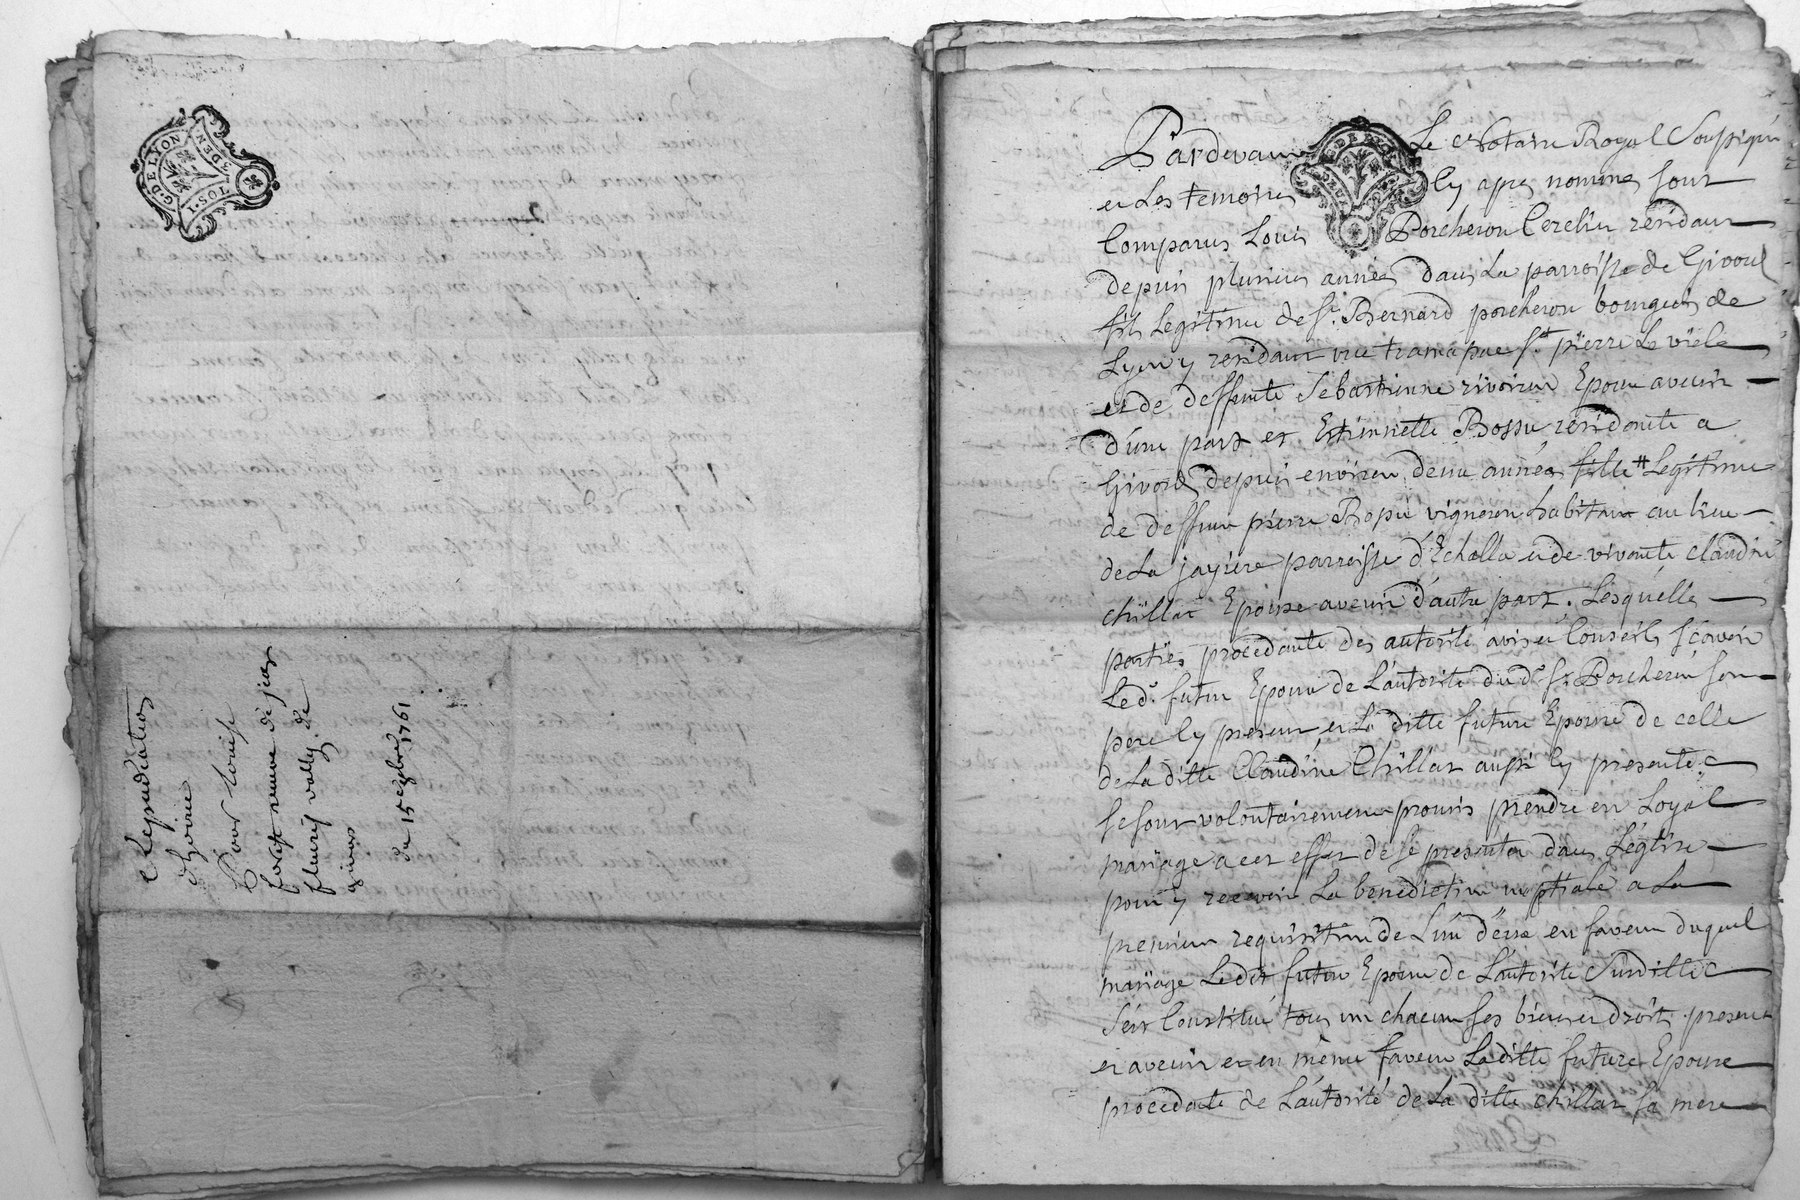 G. DE LYON
SOL
DEN
Repudiation
d'hoirie
Pour
veuve de
fleury vally de
givors
du 15 xbre 1761
Pardevant Le Notaire Royal Soussigné
et Les temoins Cy apres nommes sont
Comparus Louis Porcheron Cerclier residant
depuis plusieurs années dans La parroisse de Givors
fils Legitime de Sr. Bernard porcheron bourgeois de
Lyon y residant rue St. pierre Le viele
et de deffunte Sebastienne rivoire Epoux avenir
d'une part et Estiennette Bossu residante a
Givors depuis environ deux années fille # Legitime
de deffunt pierre Bossu vigneron habitant au lieu
de La jayiere parroisse d'Echalla et de vivante claudine
chillat Epouse avenir d'autre part. Lesquelle
parties procedante des autorité avis et Conseils scavoir
Led. futur Epoux de L'autorité dud. Sr. Porcheron son
pere Cy present, et La ditte future Epouse de celle
de La ditte Claudine Chillat aussi Cy presente
se sont volontairement promis prendre en Loyal
mariage a cet effet de se presenter dans L'église
pour y recevoir La benediction nuptiale a La
premiere requisition de L'un d'eux en faveur duquel
mariage Ledit futur Epoux de L'autorité Surditte
s'est Constitué tous un chacun ses biens et droits present
et avenir et en même faveur La ditte future Epouse
procedate de L'autorité de La ditte chillat sa mere